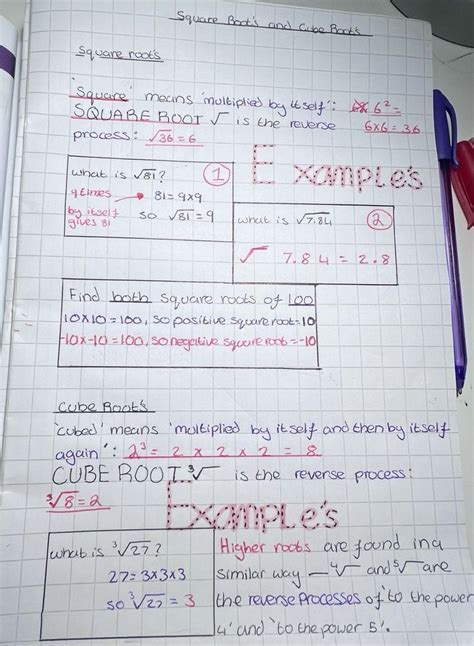 Square Root's and Cube Root's
Square root's
'Square' means 'multiplied by itself': 6² =
SQUARE ROOT √ is the reverse 6x6 = 36
process: √36 = 6
Example's
What is √81? 1
9 times → 81 = 9x9
by itself so √81 = 9
gives 81
what is √7.84 2
√ 7.84 = 2.8
Find both square roots of 100
10x10=100, so positive square root=10
-10x-10=100, so negative square root=-10
Cube Root's
'Cubed' means 'multiplied by itself and then by itself
again': 2³ = 2 x 2 x 2 = 8
CUBE ROOT ³√ is the reverse process:
³√8 = 2
Example's
What is ³√27?
27 = 3x3x3
so ³√27 = 3
Higher roots are found in a
similar way _ ⁴√ and ⁵√ are
the reverse processes of 'to the power
4' and 'to the power 5'.